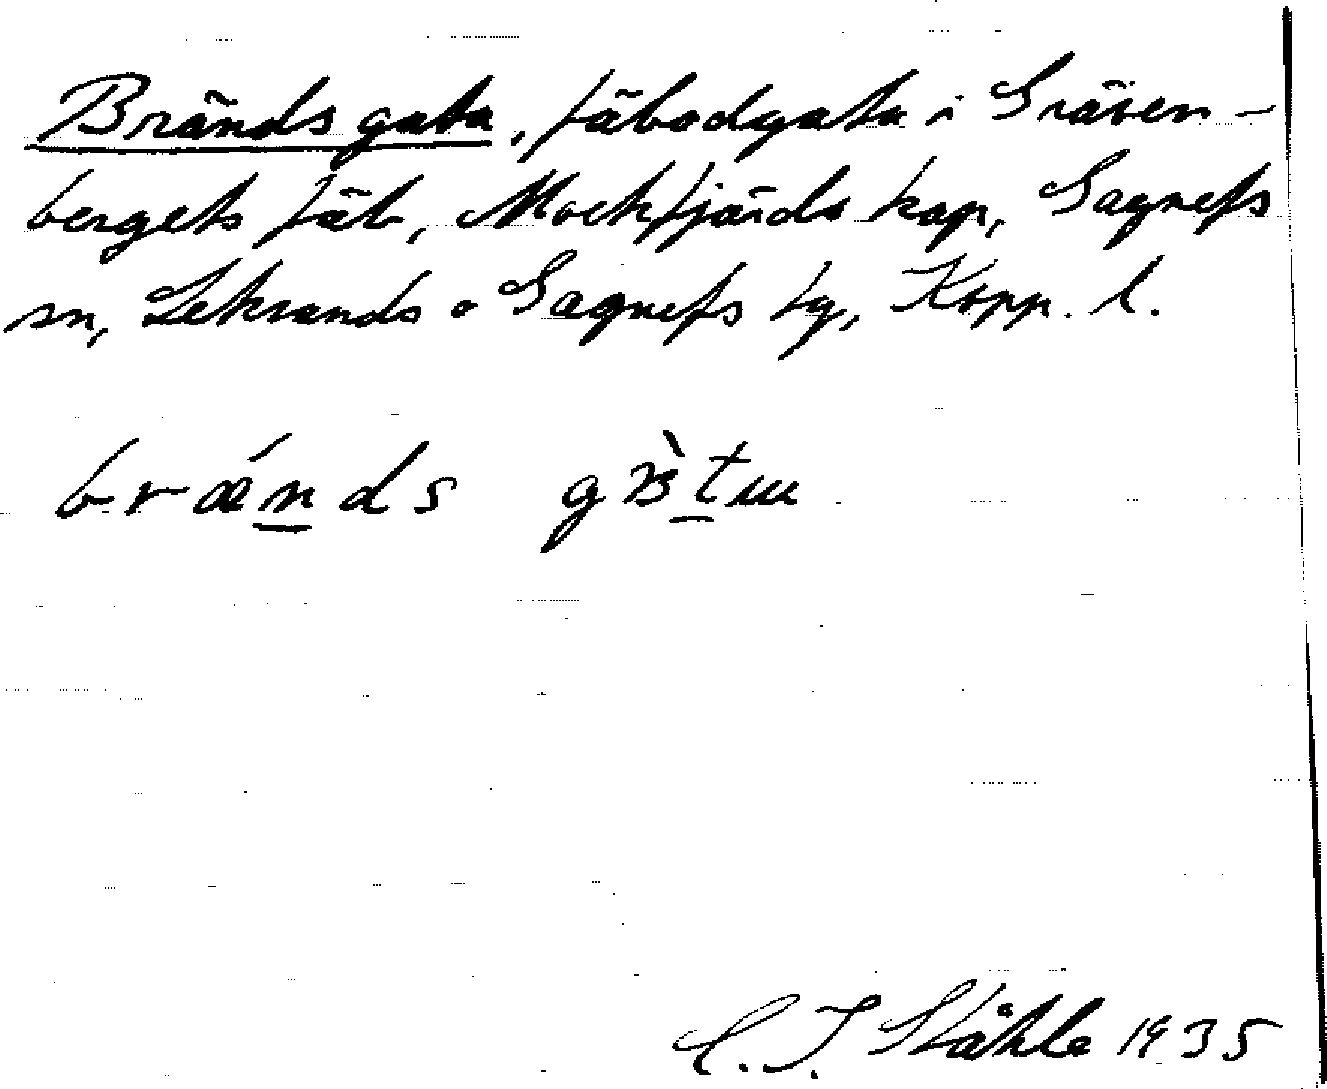 Brändsgata, fäbodgata i Gräsen-
bergets fäb, Mockfjärds kap, Gagnefs
sn, Leksands o Gagnefs tg, Kopp. l.
brǽnds
C. I. Ståhle 1935